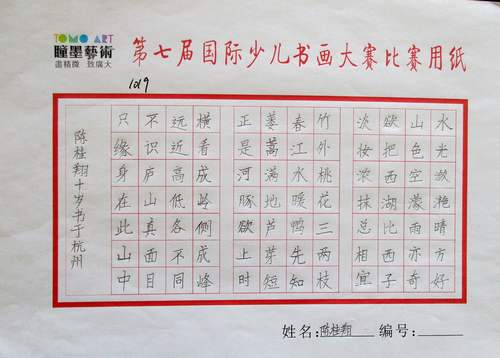 TOMO ART
瞳墨藝術
盡精微 致廣大
第七届国际少儿书画大赛比赛用纸
1019
水光潋滟晴方好
山色空濛雨亦奇
欲把西湖比西子
淡妆浓抹总相宜
竹外桃花三两枝
春江水暖鸭先知
蒌蒿满地芦芽短
正是河豚欲上时
横看成岭侧成峰
远近高低各不同
不识庐山真面目
只缘身在此山中
陈桂翔十岁书于杭州
姓名:陈桂翔 编号: